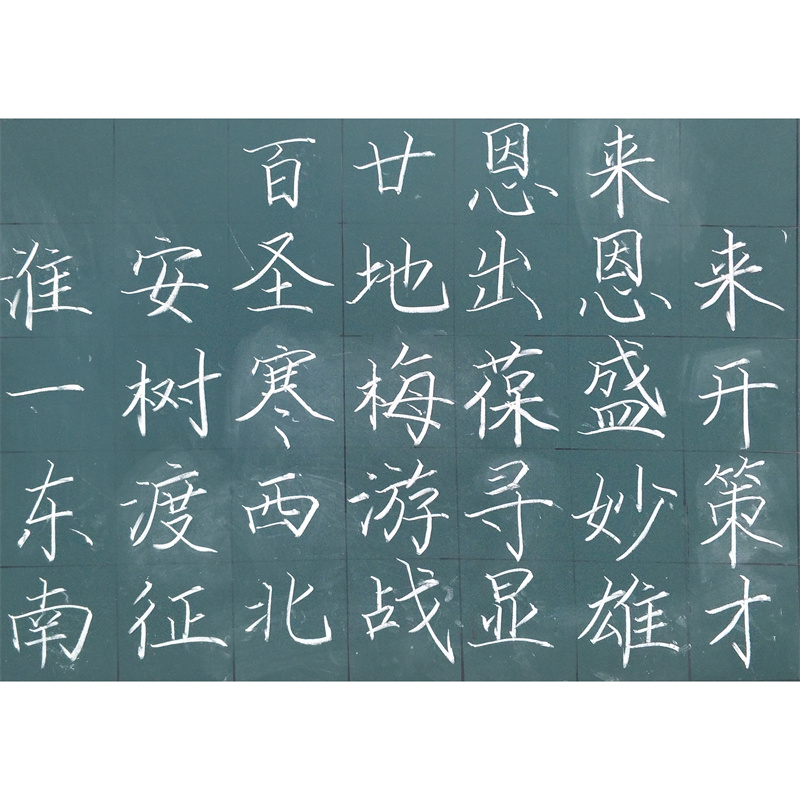 百廿恩来
淮安圣地出恩来
一树寒梅葆盛开
东渡西游寻妙策
南征北战显雄才